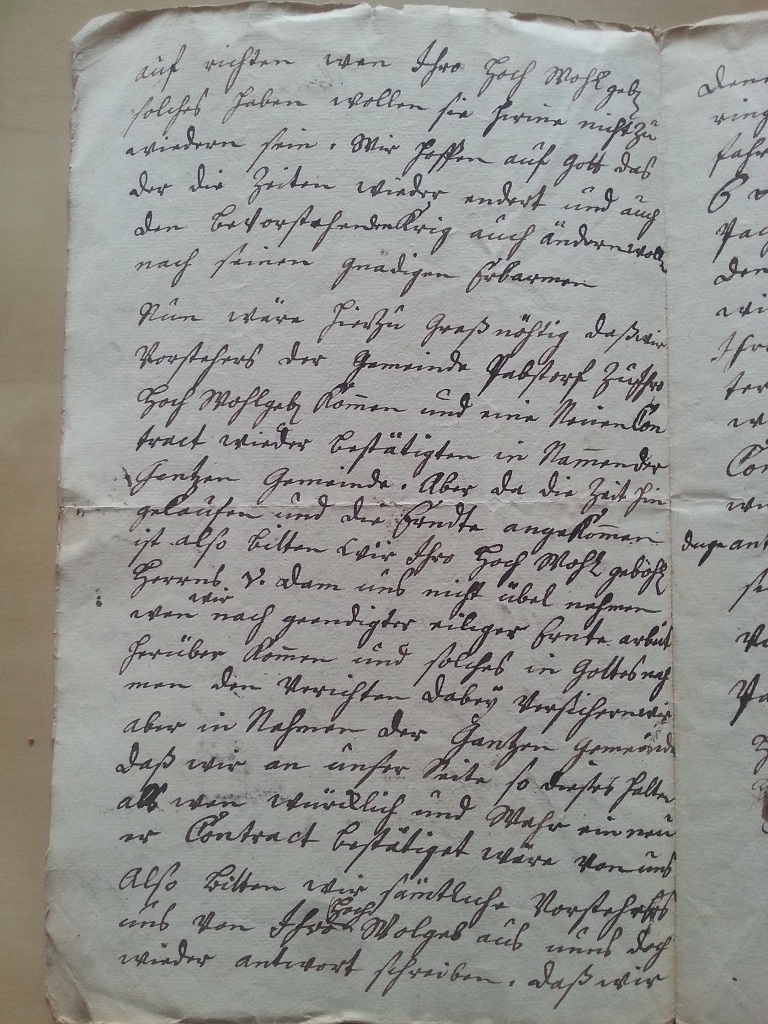 auf richten wen Ihro Hoch Wohlgeb
solches haben wollen sie hirine nicht zu
wiedern sein. Wir hoffen auf Gott das
der die Zeiten wieder endert und auch
den bevorstehenden Krig auch ändern wolle
nach seinen gnädigen Erbarmen
Nun wäre hierzu Groß nöhtig daß wir
Vorstehers der Gemeinde Pabstorf zu Ihro
Hoch Wohlgeb Kommen und eine Neuen Con
tract wieder bestätigten in Nammen der
Gantzen Gemeinde. Aber da die Zeit hin
gelaufen und die Erndte angekommen
ist also bitten wir Ihro Hoch Wohl geb
Herrns v. Dam uns nicht übel nehmen
wen wir nach geendigter eiliger Ernte arbeit
herüber Kommen und solches in Gottes nah
men den Verichten dabey Versichern wir
aber in Nahmen der Gantzen Gemeinde
daß wir an unser Seite so dieses halten
als wen würcklich und Wahr ein neu
er Contract bestätiget wäre von uns
Also bitten wir sämtliche Vorstehers
uns von Ihro Hoch Wolgeb aus uns doch
wieder antwort schreiben. daß wir